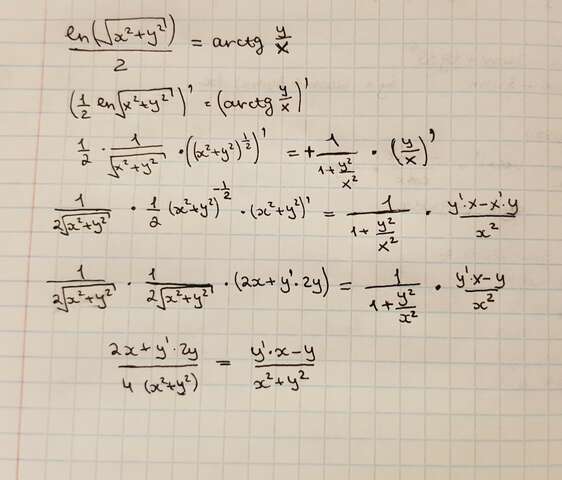 ln(√(x²+y²))/2 = arctg y/x
(1/2 ln√(x²+y²))' = (arctg y/x)'
1/2 · 1/√(x²+y²) · ((x²+y²)^(1/2))' = +1/(1+y²/x²) · (y/x)'
1/(2√(x²+y²)) · 1/2 (x²+y²)^(-1/2) · (x²+y²)' = 1/(1+y²/x²) · (y'·x-x'·y)/x²
1/(2√(x²+y²)) · 1/(2√(x²+y²)) · (2x+y'·2y) = 1/(1+y²/x²) · (y'·x-y)/x²
(2x+y'·2y)/(4(x²+y²)) = (y'·x-y)/(x²+y²)